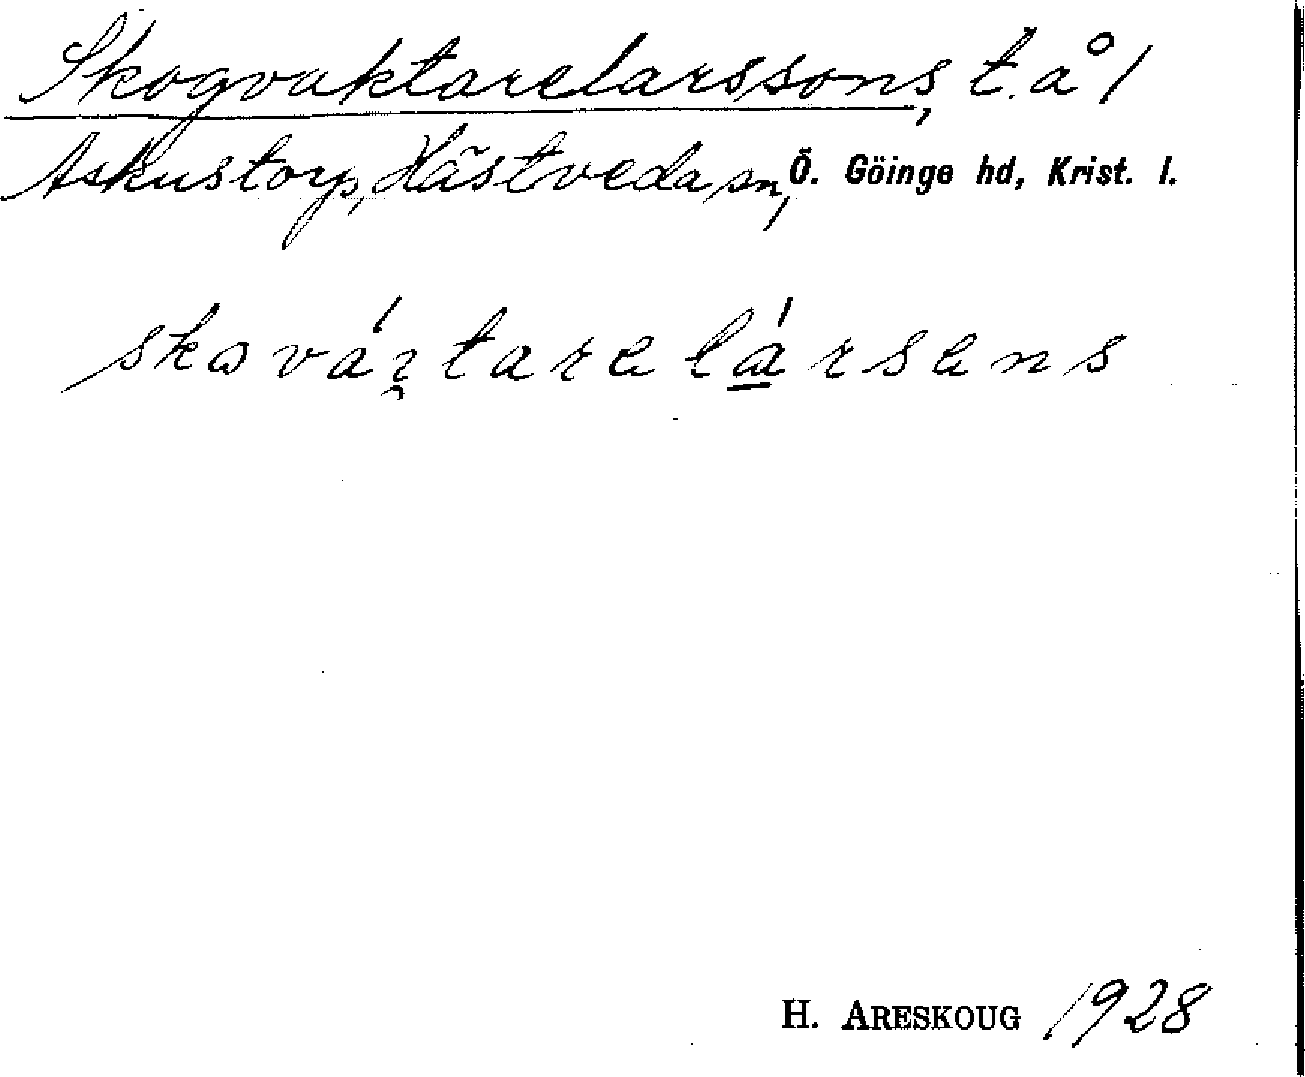 Skogvaktarelarssons, t. å 1
Askustorp, Hästveda sn, Ö. Göinge hd, Krist. l.
skɷvártarelársens
H. ARESKOUG 1928